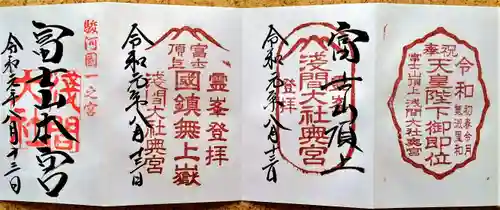 奉祝
天皇陛下御即位
令和
初春令月
氣淑風和
富士山頂上 浅間大社奥宮
富士山頂上
登拝
浅間大社奥宮
令和元年八月十三日
霊峯登拝
富士
頂上
國鎮無上嶽
浅間大社奥宮
令和元年八月十三日
駿河國一之宮
富士山本宮
浅間大社
令和元年八月十三日